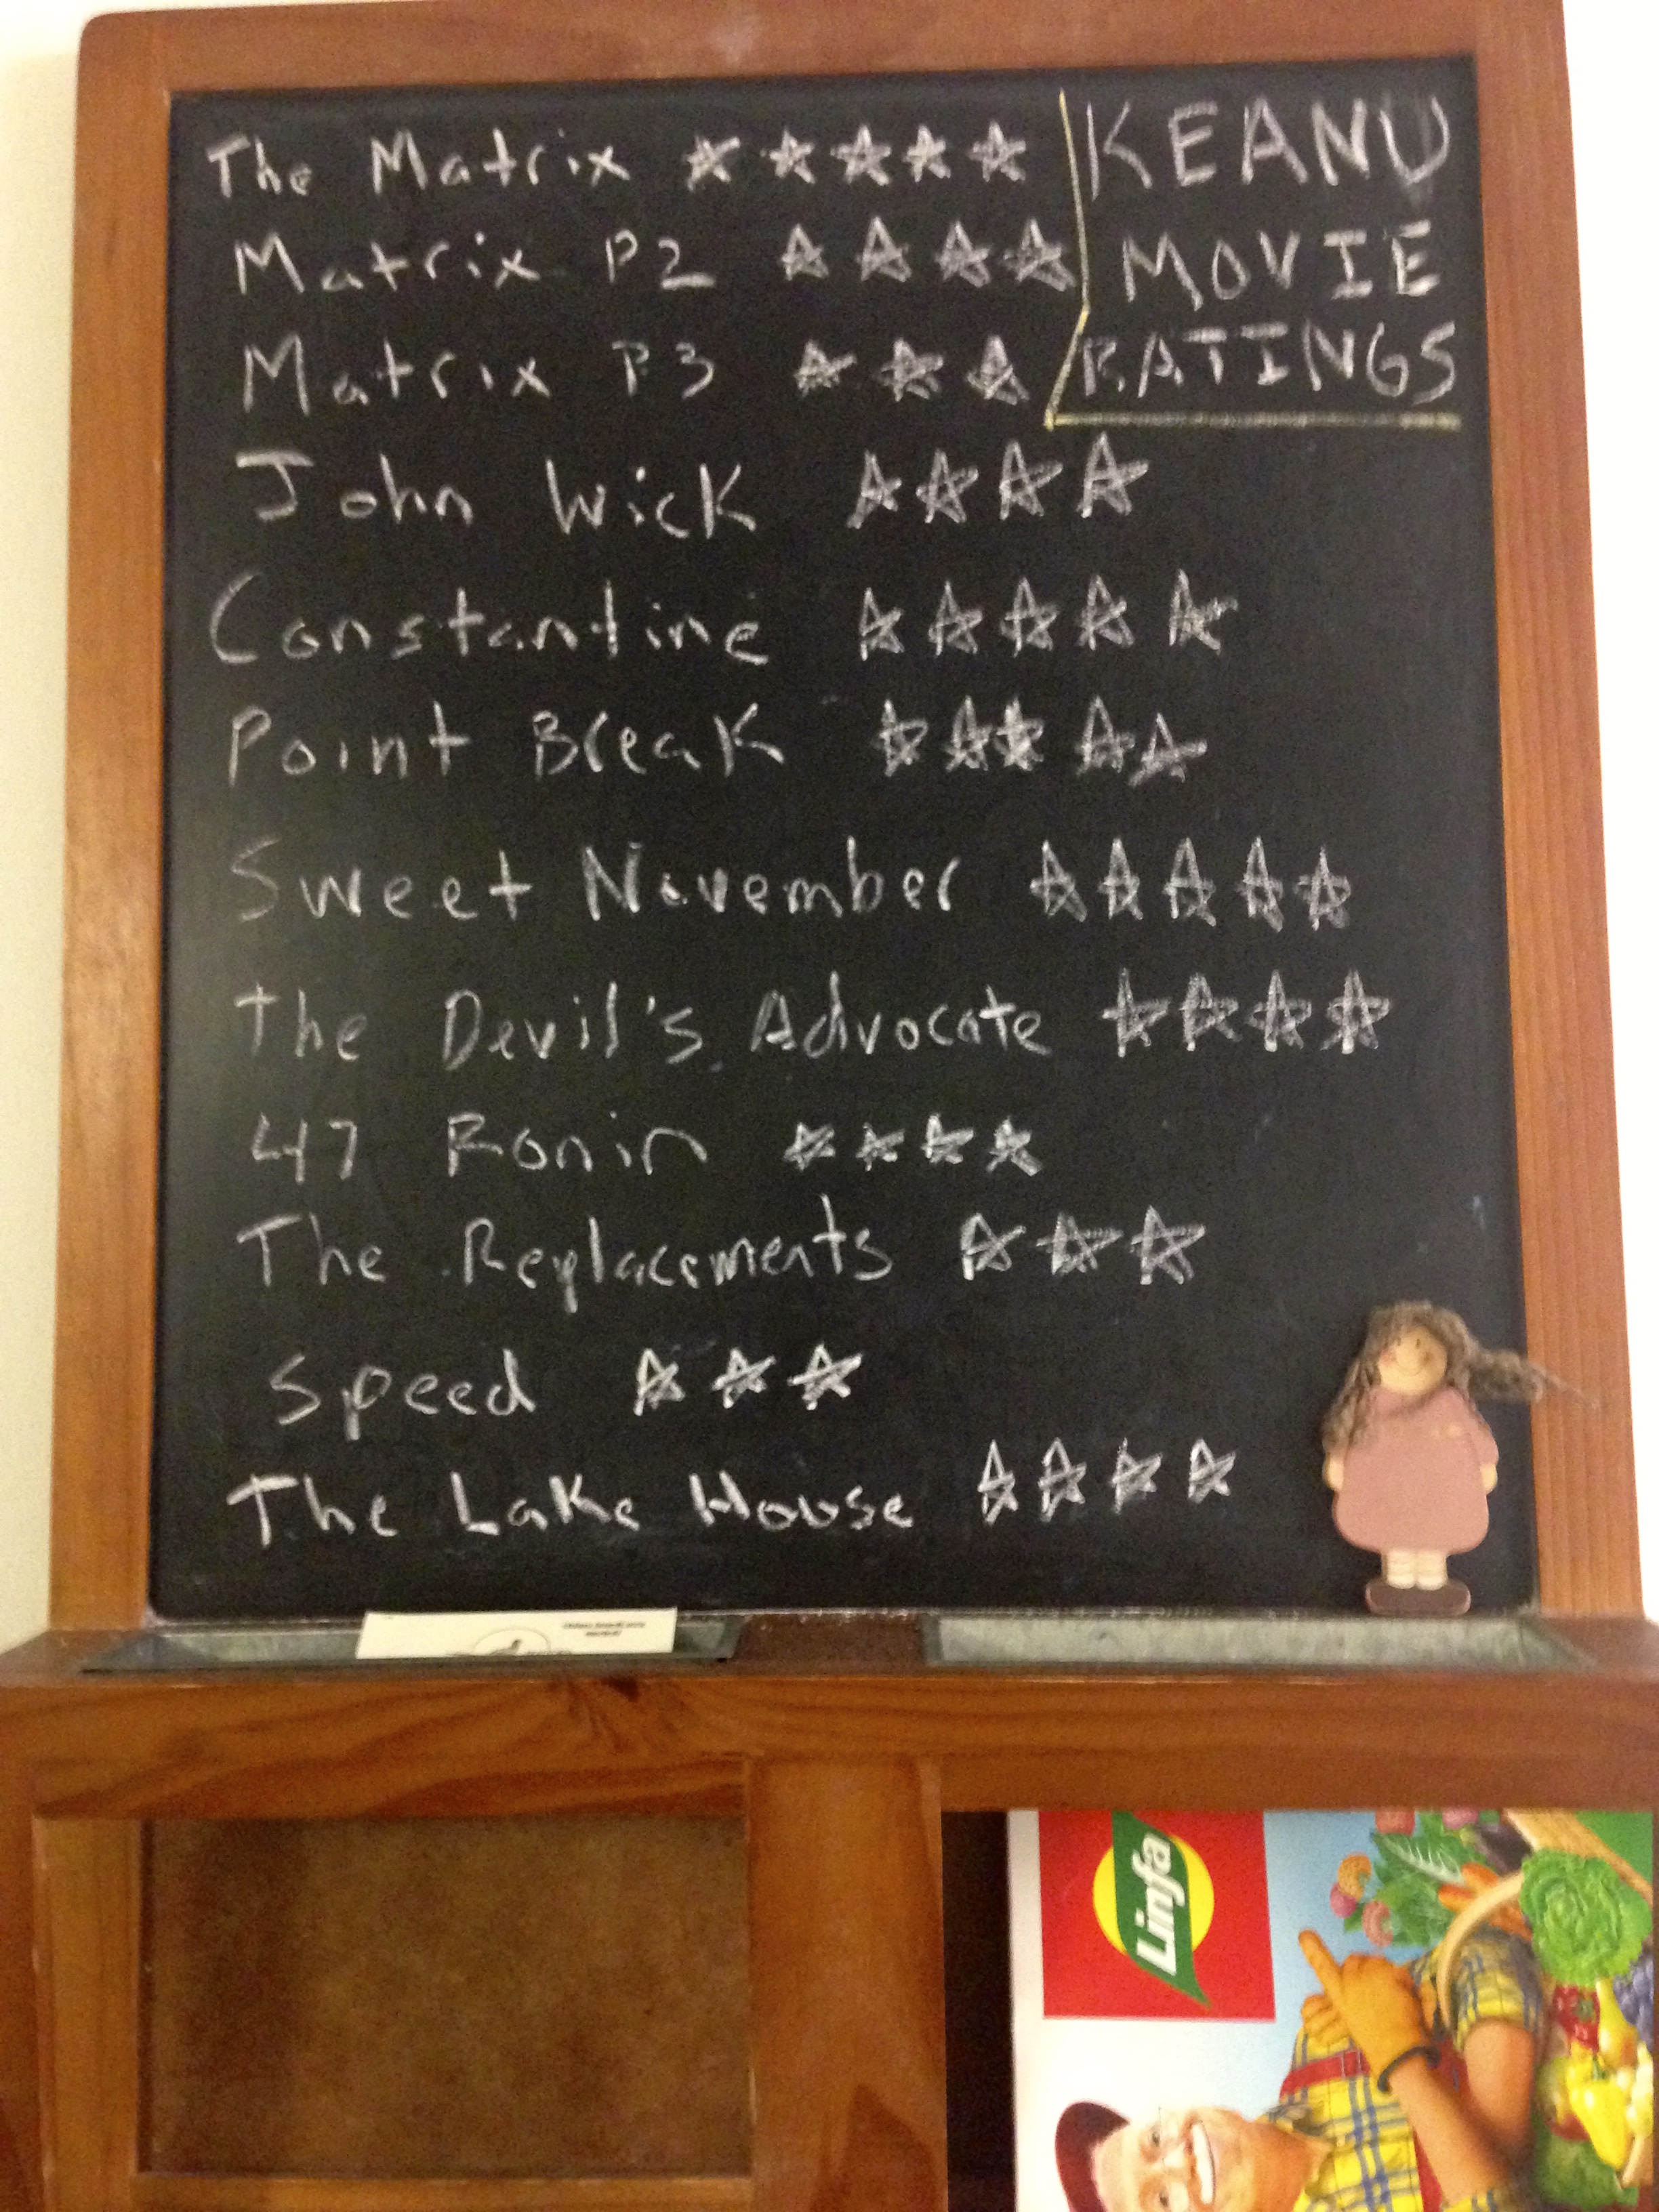 The Matrix ★★★★★
Matrix P2 ★★★★
Matrix P3 ★★★
John Wick ★★★★
Constantine ★★★★★
Point Break ★★★★★
Sweet November ★★★★★
The Devil's Advocate ★★★★
47 Ronin ★★★★
The Replacements ★★★
Speed ★★★
The Lake House ★★★★
KEANU
MOVIE
RATINGS
Linfa